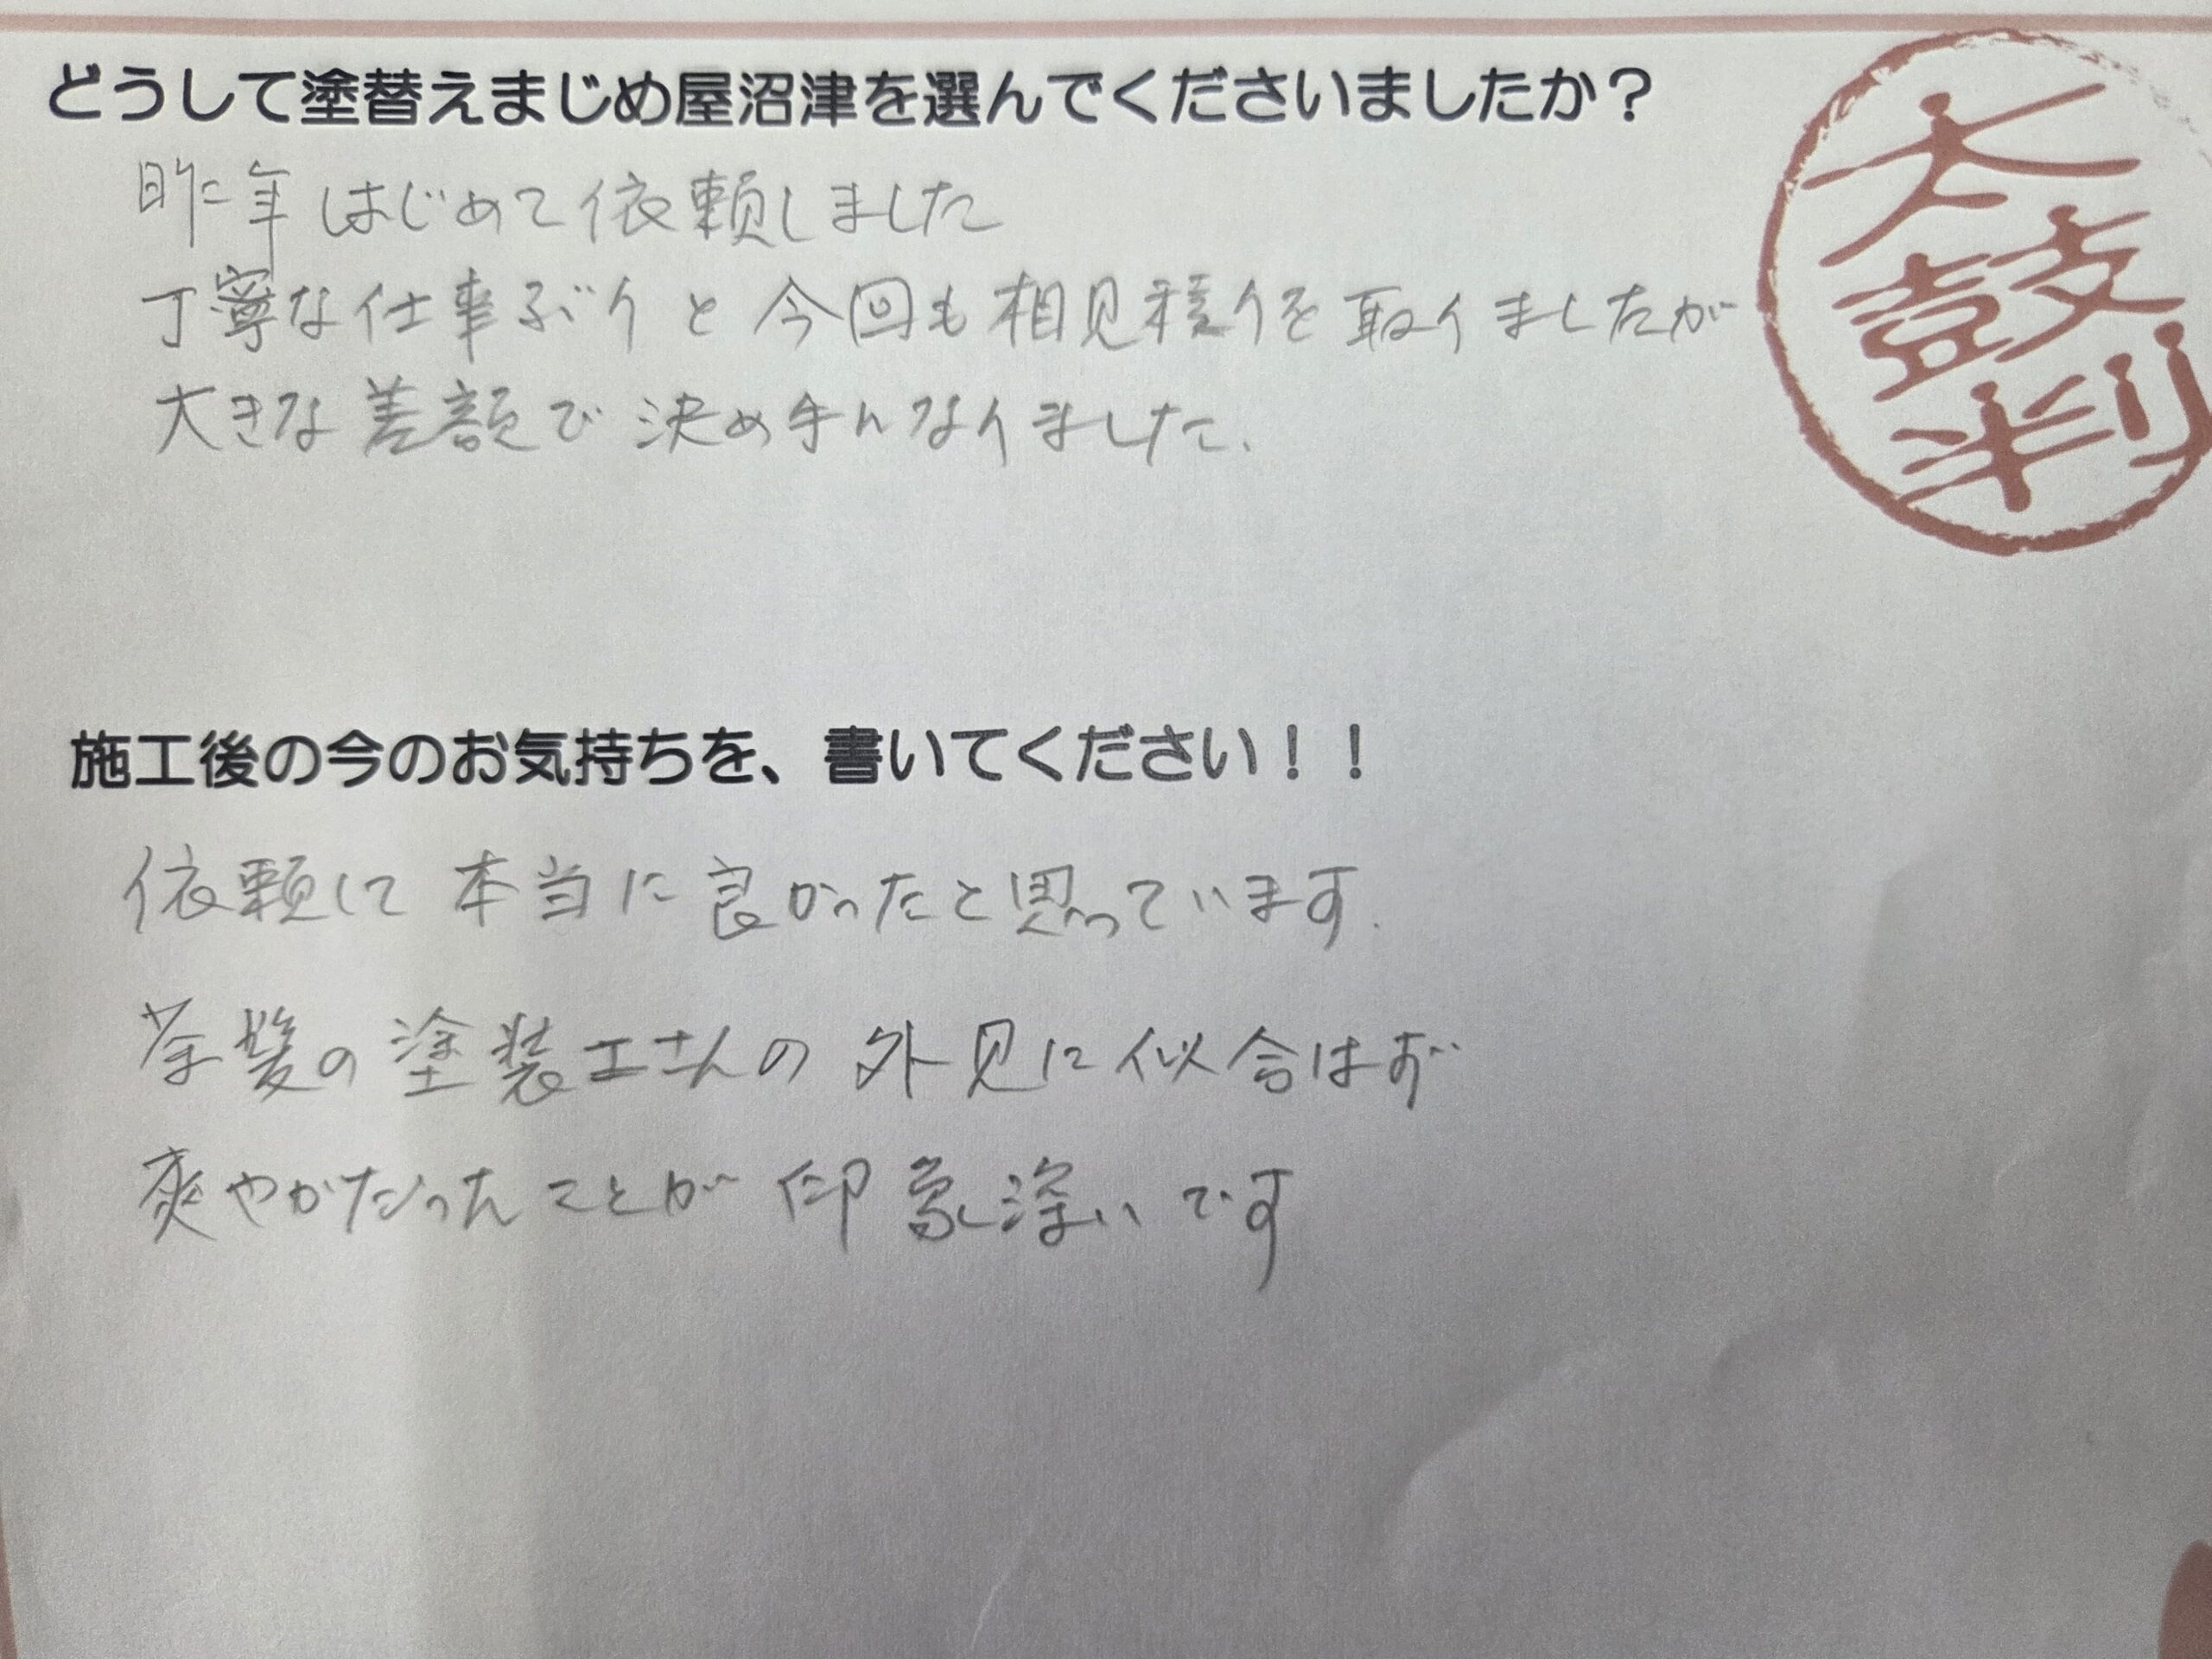 どうして塗替えまじめ屋沼津を選んでくださいましたか？
昨年はじめて依頼しました
丁寧な仕事ぶりと今回も相見積りを取りましたが
大きな差額で決め手になりました.
太鼓判
施工後の今のお気持ちを、書いてください！！
依頼して本当に良かったと思っています.
茶髪の塗装工さんの外見に似合はず
爽やかだったことが印象深いです